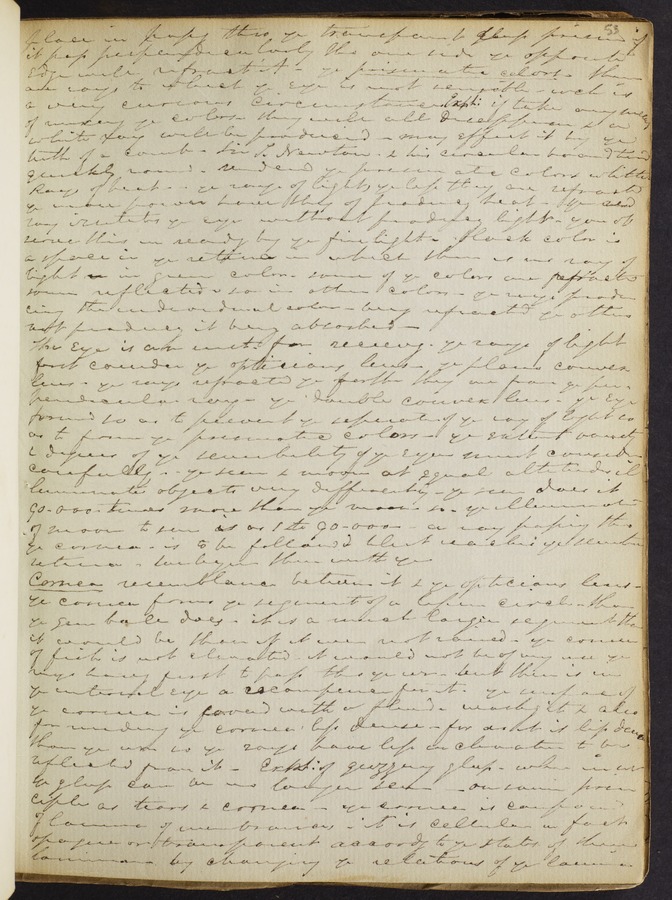 53
place in passg thro ye transparent glass prism if
it pass perpendicularly thro one side ye opposite
Edge will refract it - ye prismatic colors - there
are rays to which ye Eye is not sensible - wch is
a very curious circumstance Exph: is take any way
of mixing ye colors they will all disappear & a
white ray will be produced - may effect it by ye
teeth of a comb - Sir I. Newton & his circular board turnd
quickly round - renderd ye prismatic colors white
Rays of heat - ye rays of light ye less they are refracted
ye more power have they of producg heat - ye red
ray irritates ye eye without producg light - you ob
serve this in readg by ye fire light - Black color is
a space in ye retina in which there is no ray of
light in green color some of ye colors are refracted
some reflected & so in other colors - ye rays produ
cing the individual color being refracted ye others
not producg it being absorbed -
The Eye is an inst: for receivg. ye rays of light
first consider ye opticians lens - ye plano convex
lens - ye rays refracted ye further they are from ye per-
pendicular rays - ye double convex lens - ye Eye
formed so as to prevent ye separatn of ye ray of light so
as to form ye prismatic colors - ye Extent variety
& degrees of ye sensibility of ye Eyes must consider
carefully - ye sun & moon at equal altitudes il
luminate objects very differently - ye sun does it
90.000 times more than ye moon - so ye illuminatn
of moon to sun is as 1 to 90.000 - a ray passg thro
ye cornea - is to be followd till it reaches ye sensible
retina - we begin then with ye
Cornea resemblance between it & ye opticians lens -
ye cornea forms ye segment of a lesser circle than
ye gen ball does - it is a much larger segment than
it would be then if it were not raised - ye cornea
of fish is not elevated - it would not be of any use ye
rays having first to pass thro ye - but there is in
ye internal eye a compensn for it - ye surface of
ye cornea is coverd with a fluid washg it & also
for making ye cornea less dense - for as it is less dense
than ye so ye rays have less inclination to be
reflected from it - Exph: of glass - when in
ye glass can be no longer seen - on same prin
ciple as tears & cornea - ye cornea is composd
of laminæ of membranes - it is cellular in fact
opaque or transparent accordg to ye state of these
laminæ by changing ye relations of ye laminæ